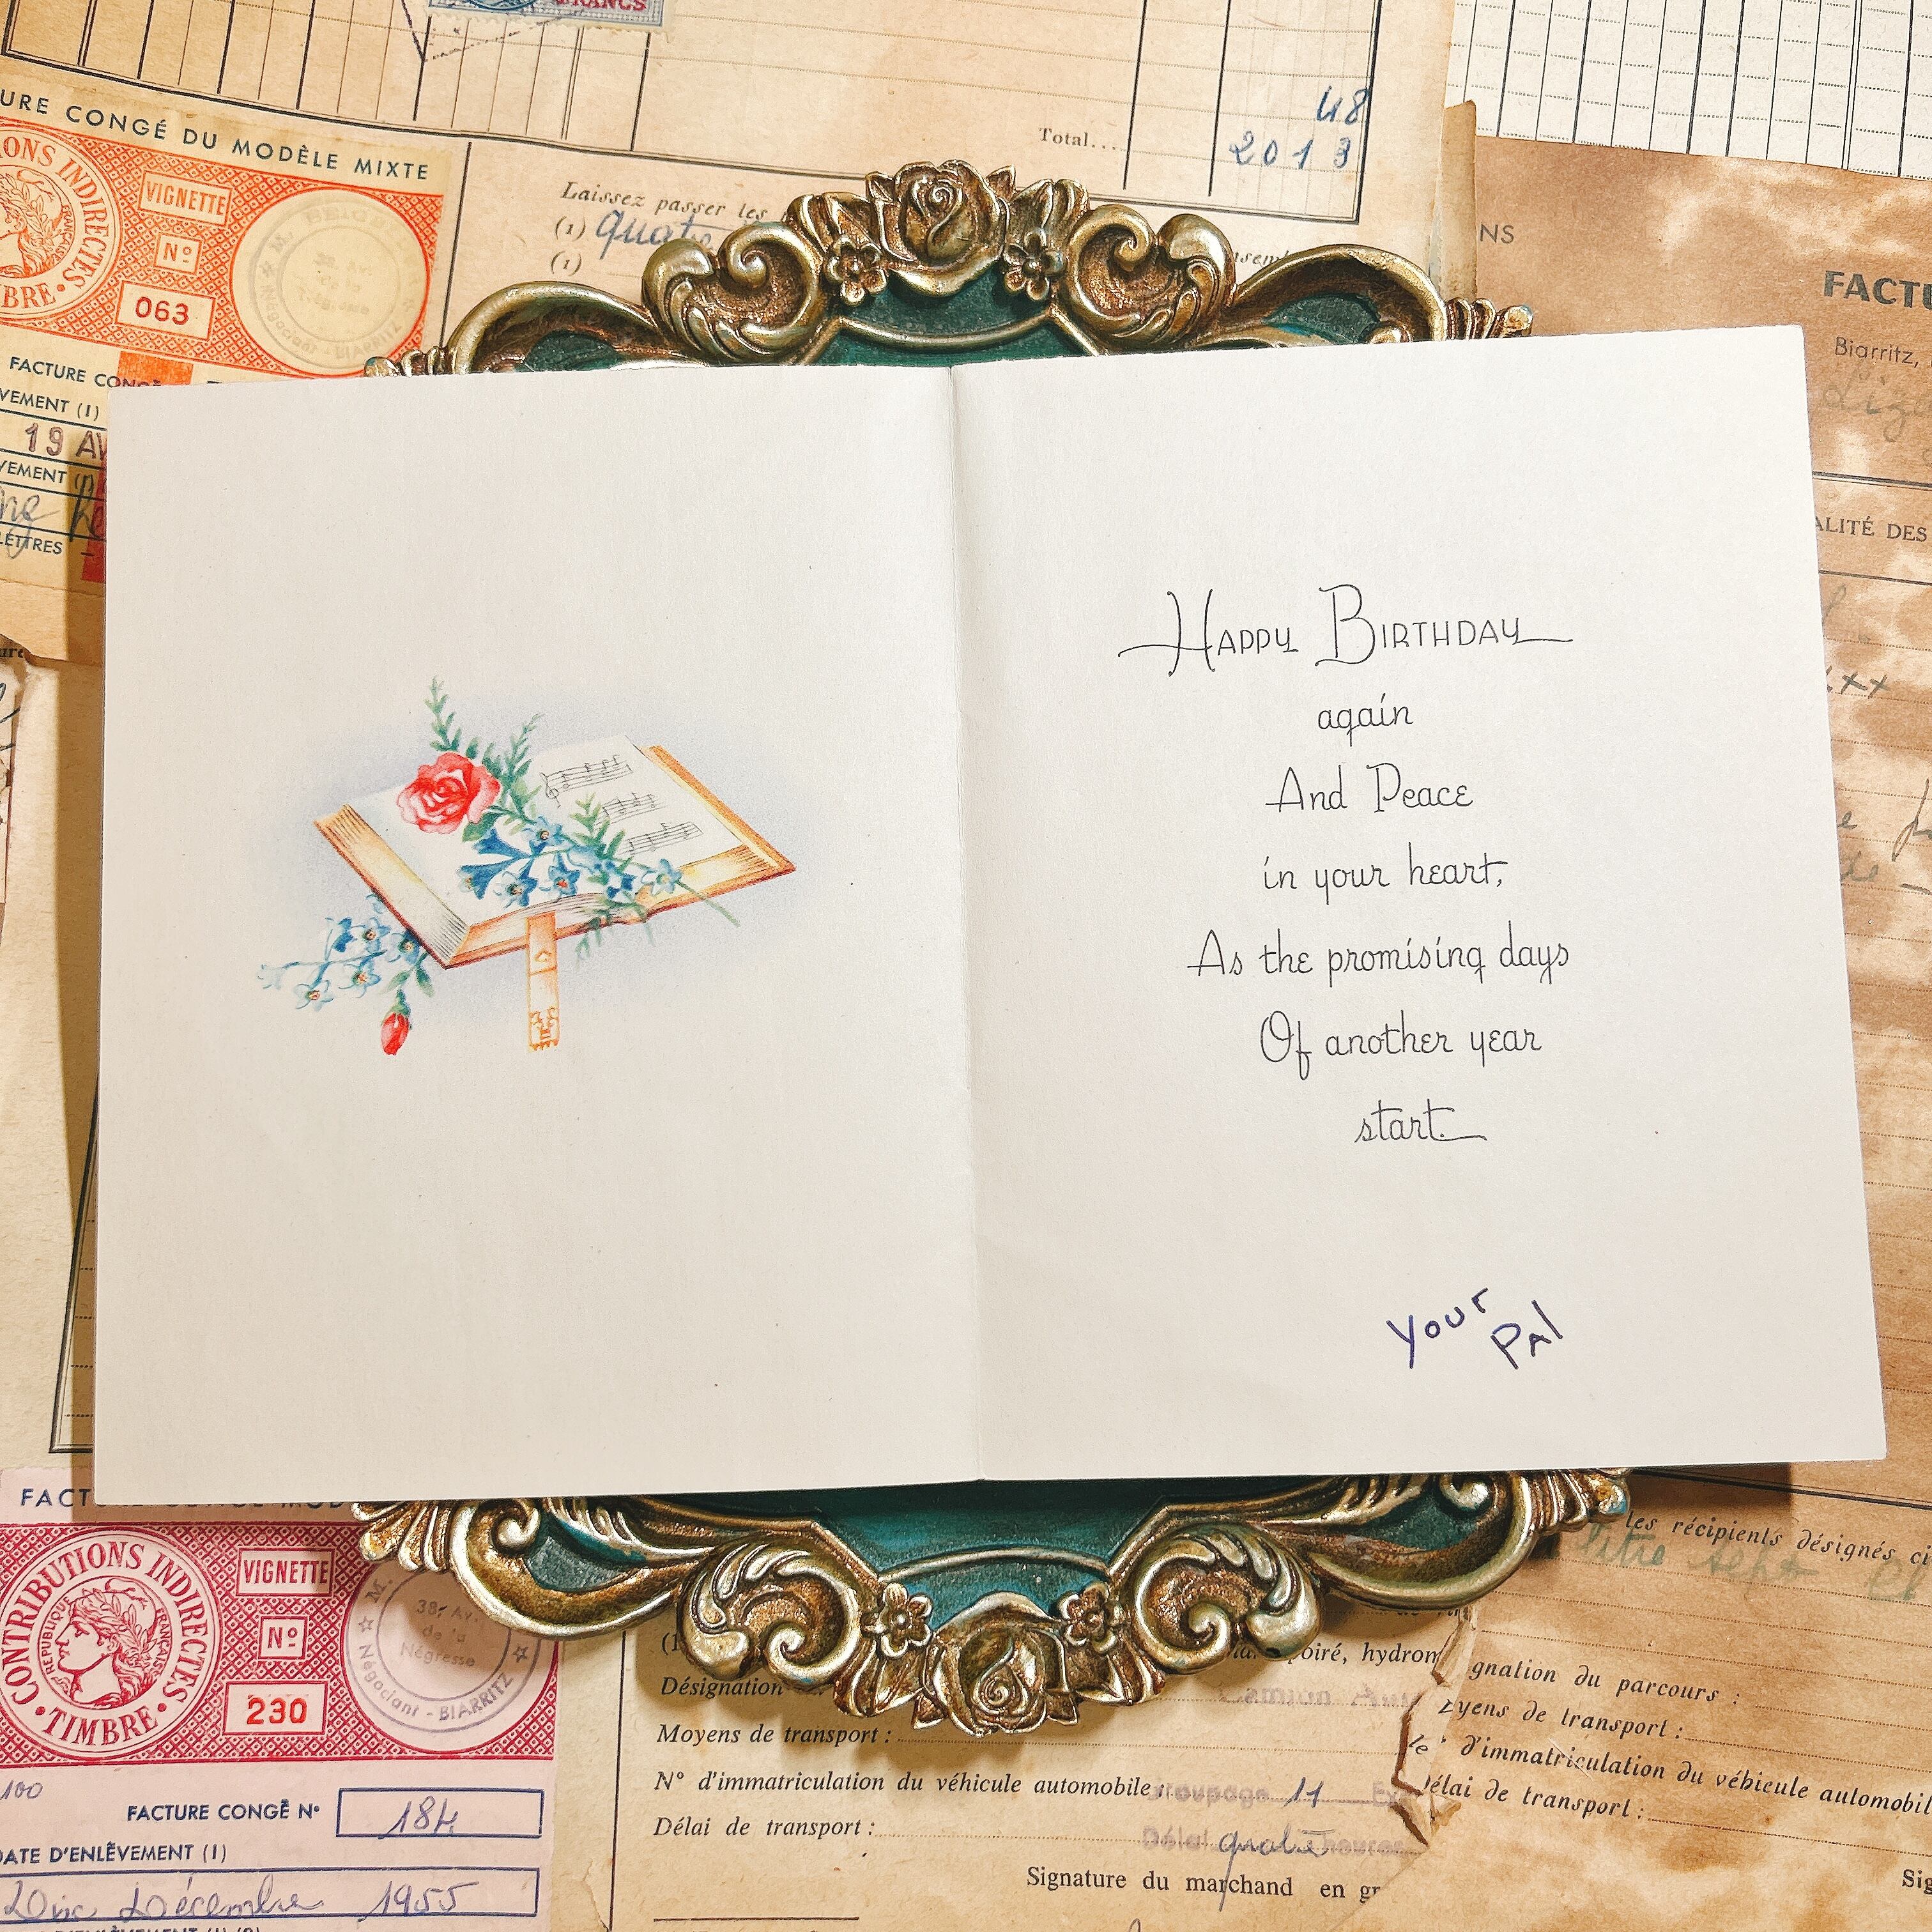 FRANCS
48
Total...
2013
URE CONGÉ DU MODÈLE MIXTE
VIGNETTE
Nº
063
BIARRITZ
Laissez passer les
(1) quatre
(1)
FACTURE
VEMENT (I)
19 AV
VEMENT
LETTRES
NS
FACTU
Biarritz,
ALITÉ DES
xx
HAPPY BIRTHDAY
again
And Peace
in your heart,
As the promising days
Of another year
start.
your
PAl
FACT
CONTRIBUTIONS INDIRECTES
RÉPUBLIQUE FRANÇAISE
TIMBRE
VIGNETTE
Nº
230
M.
38, Av.
de la
Négresse
Négociant - BIARRITZ
100
FACTURE CONGÉ Nº 184
DATE D'ENLÈVEMENT (I)
Décembre 1955
poiré, hydrom
Désignation
Moyens de transport :
Nº d'immatriculation du véhicule automobile : Groupage 11
Délai de transport : Délai quatre heures
Signature du marchand en gr
les récipients désignés ci
gnation du parcours :
yens de transport :
d'immatriculation du véhicule automobil
élai de transport :
Sig